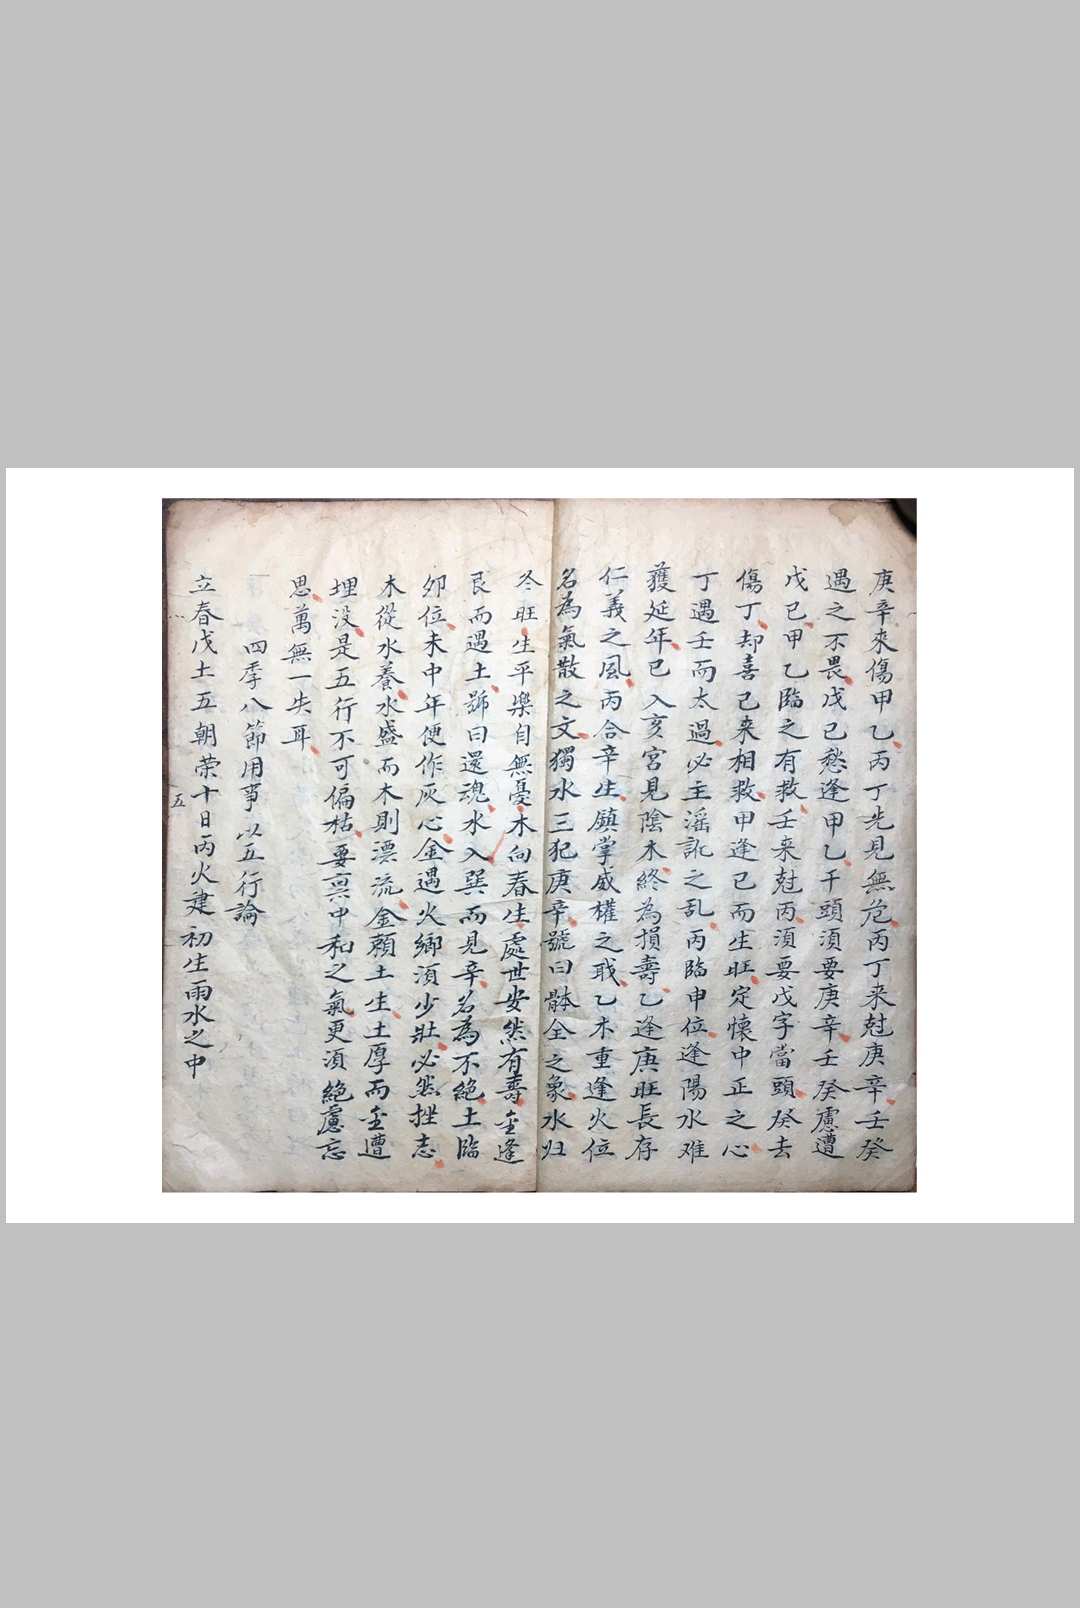 庚辛來傷甲乙丙丁先見無危丙丁来尅庚辛壬癸
遇之不畏戊己愁逢甲乙干頭須要庚辛壬癸慮遭
戊己甲乙臨之有救壬来尅丙須要戊字當頭癸去
傷丁却喜己来相救甲逢己而生旺定懷中正之心
丁遇壬而太過必主滛訛之乱丙臨申位逢陽水难
獲延年巳入亥宮見陰木終為損壽乙逢庚旺長存
仁義之風丙合辛生鎮掌威權之戢乙木重逢火位
名為氣散之文獨水三犯庚辛號曰骵全之象水归
冬旺生平樂自無憂木向春生處世安然有壽金逢
艮而遇土號曰還魂水入巽而見辛名為不絕土臨
夘位未中年便作灰心金遇火鄉須少壯必然挫志
木從水養水盛而木則漂流金頼土生土厚而金遭
埋没是五行不可偏枯要禀中和之氣更須絕慮忘
思萬無一失耳
四季八節用事以五行論
立春戊土五朝荣十日丙火建初生雨水之中
五